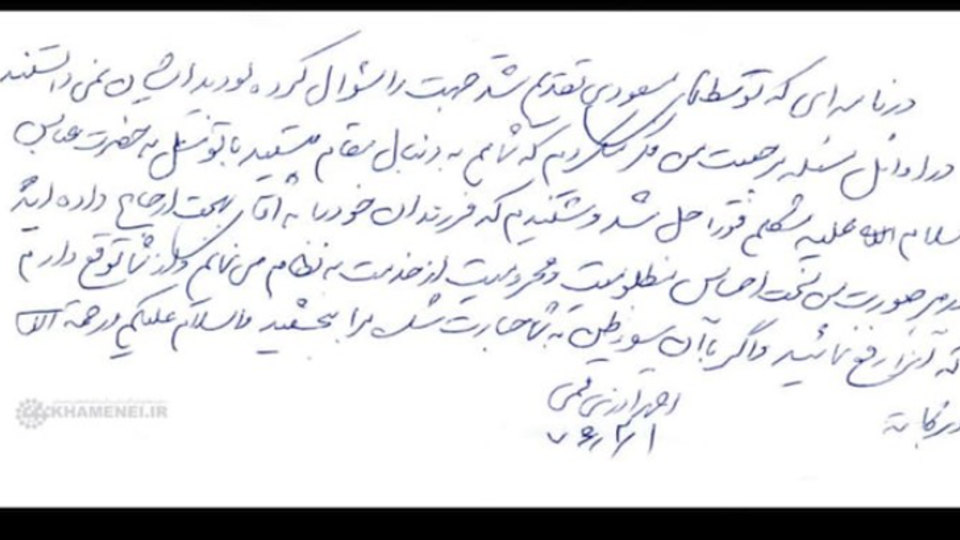 در نامه‌ای که توسط آقای مسعودی تقدیم شد جهت را سؤال کرده بودید ایشان نمی دانستند
در اوائل مسئله مرجعیت من فکر میکردم که شما هم به دنبال مقام هستید با توسل به حضرت عباس
سلام الله علیه مشکلم فوراً حل شد و شنیدیم که فرزندان خود را به آقای بهجت ارجاع داده اید
در هر صورت من سخت احساس مظلومیت و محرومیت از خدمت به نظام می نمایم و از شما توقع دارم
که آنرا رفع نمائید و اگر با آن سوءظن به شما جسارت شد مرا ببخشید والسلام علیکم و رحمة الله
و برکاته
احمد آذری قمی
KHAMENEI.IR